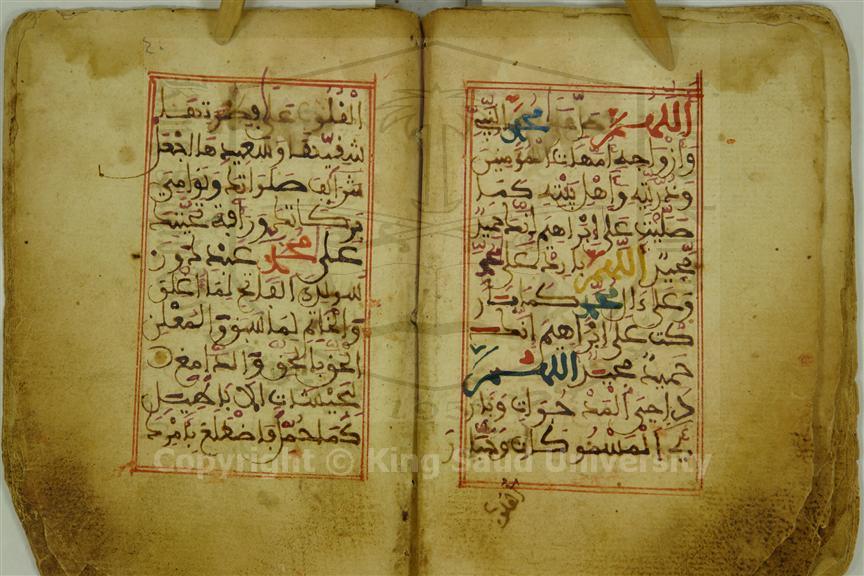 اللهم صل على محمد النبي
وأزواجه أمهات المؤمنين
وذريته وأهل بيته كما
صليت على إبراهيم إنك حميد
مجيد اللهم بارك على محمد
وعلى ءال محمد كما بار
كت على إبراهيم إنك
حميد مجيد اللهم
داحي المدحوات وبار
ئ المسموكات وجبار
القلوب
القلوب على فطرتها
شقيها وسعيدها اجعل
شرائف صلواتك ونوامي
بركاتك ورأفة تحننك
على محمد عبدك ور
سولك الفاتح لما أغلق
والخاتم لما سبق والمعلن
الحق بالحق والدامغ
لجيشات الأباطيل
كما حمل فاضطلع بأمرك
Copyright © King Saud University